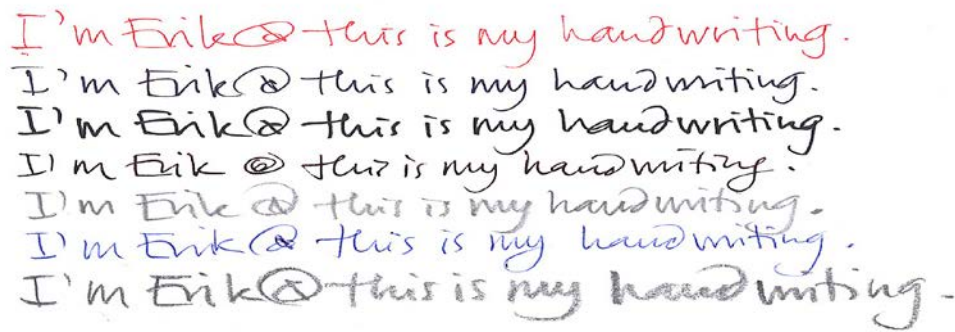 I'm Erik @ this is my handwriting.
I'm Erik @ this is my handwriting.
I'm Erik @ this is my handwriting.
I'm Erik @ this is my handwriting.
I'm Erik @ this is my handwriting.
I'm Erik @ this is my handwriting.
I'm Erik @ this is my handwriting.